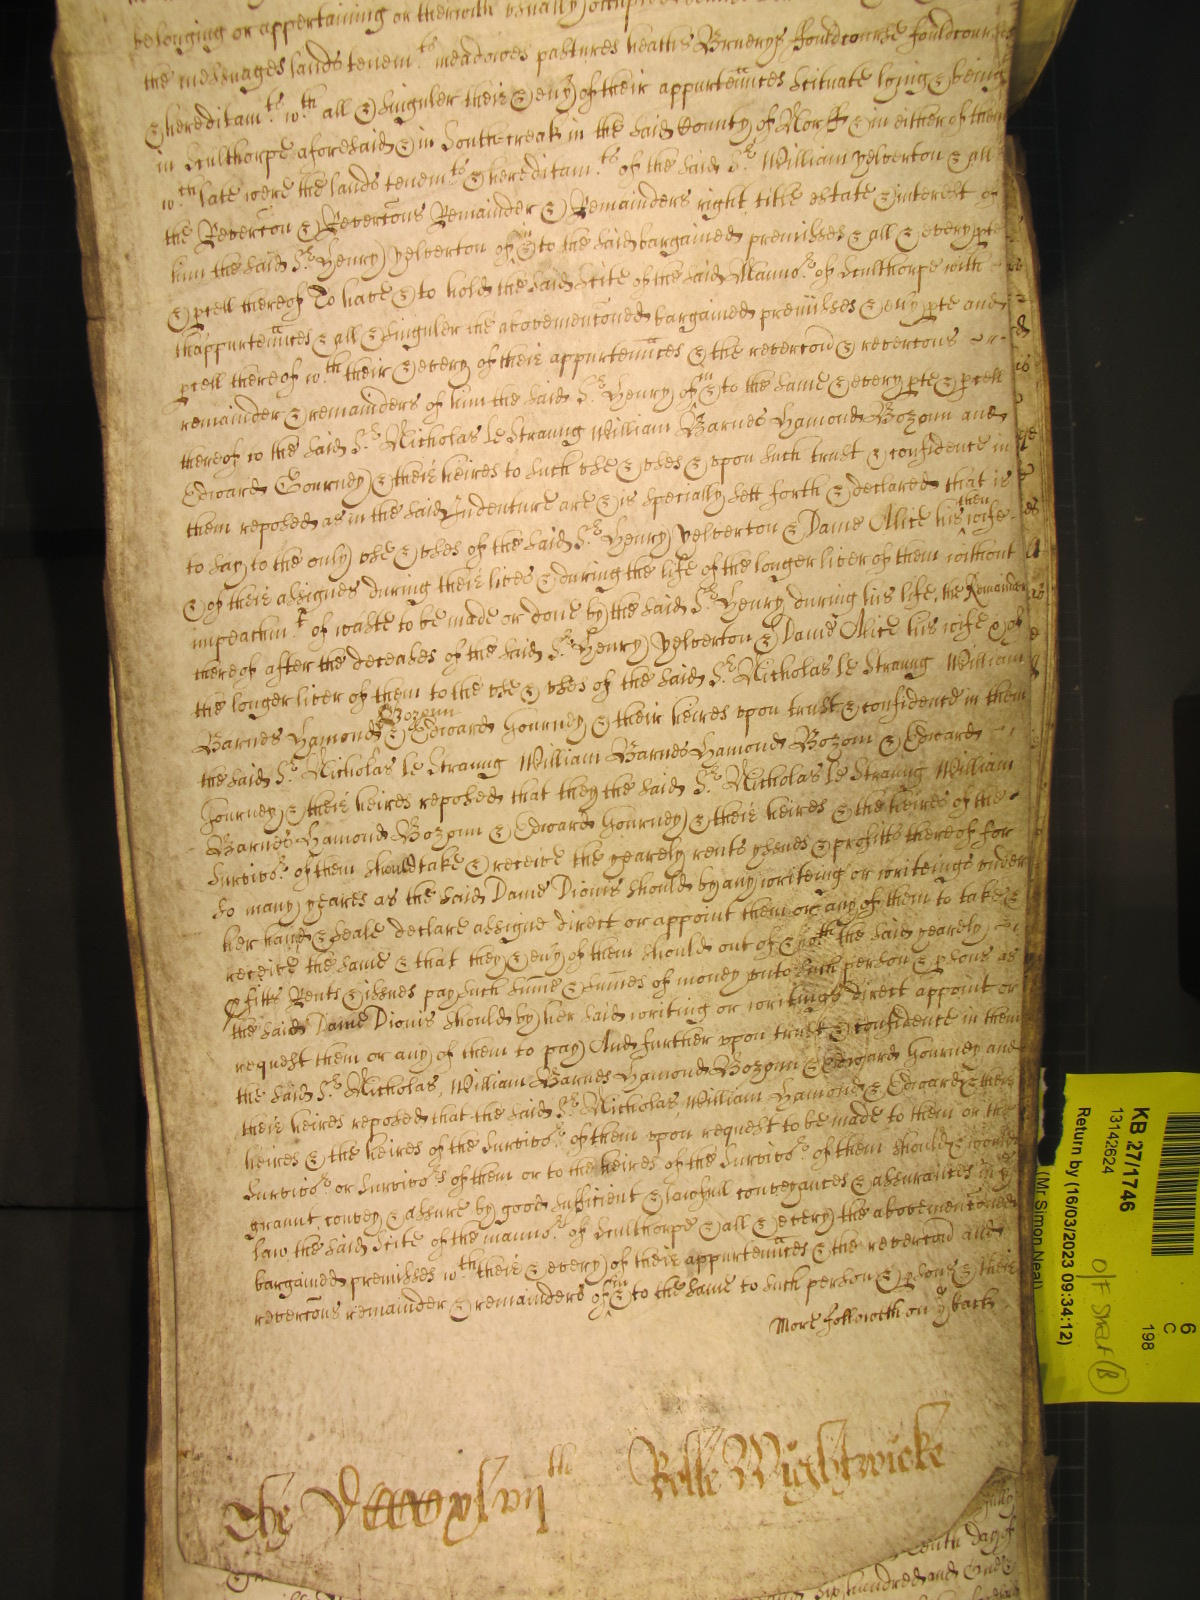 belonging or appertaining or therwith usually
the messuages lands tenem.ts meadowes pastures heaths Brueryes ffouldcourse fouldcourses
& hereditam.ts w.th all & singuler their & ev'y of their appurtenn̄ces scituate lying & being
in Sculthorpe aforesaid & in Southcreak in the said County of Norff & in either of them
w.ch late were the lands tenem.ts & hereditam.ts of the said S.r William yelverton & all
the Revercōn & Revercōns Remainder & Remainders right title estate & interest of
him the said S.r Henry yelverton of in & to the said bargained premisses & all & every pte
& pcell thereof To have & to hold the said Scite of the said Manno.r of Sculthorpe with
thappurtenn̄ces & all & singuler the abovementōned bargained premisses & ev'y pte and
pcell thereof w.th their & every of their appurtenn̄ces & the revercōn & revercōns
remainder & remainders of him the said S.r Henry of in & to the same & every pte & pcell
thereof to the said S.r Nicholas le Straung William Barnes Hamond Bozoun and
Edward Gourney & their heires to such use & uses & upon such trust & confidence in
them reposed as in the said Indenture are & is specially sett forth & declared that is
to say to the only use & uses of the said S.r Henry yelverton & Dame Alice his then wife
& of their assignes during their lives & during the life of the longer liver of them without
impeachm.t of waste to be made or done by the said S.r Henry during his life, the Remainder
thereof after the deceases of the said S.r Henry yelverton & Dame Alice his wife & of
the longer liver of them to the use & uses of the said S.r Nicholas le Straung William
Barnes Hamond Bozoun & Edward Gourney & their heires upon trust & confidence in them
the said S.r Nicholas le Straung William Barnes Hamond Bozoun & Edward
Gourney & their heires reposed that they the said S.r Nicholas le Straung William
Barnes Hamond Bozoun & Edward Gourney & their heires & the heires of the
Survivo.r of them should take & receive the yearely rents yssues & profitts thereof for
so many yeares as the said Dame Dionis should by any writeing or writeings under
her hand & seale declare assigne direct or appoint them or any of them to take &
receive the same & that they & ev'y of them should out of & w.th the said yearely
pfitts Rents & issues pay such sum̄e & sum̄es of money unto such person & psons as
the said Dame Dionis should by her said writing or writings direct appoint or
request them or any of them to pay And further upon trust & confidence in them
the said S.r Nicholas, William Barnes Hamond Bozoun & Edward Gourney and
their heires reposed that the said S.r Nicholas, William Hamond & Edward & their
heires & the heires of the Survivo.r of them upon request to be made to them or the
Survivo.r or Survivo.rs of them or to the heires of the Survivo.r of them should & would
graunt convey & assure by good sufficient & lawfull conveyances & assurances in y.e
law the said Scite of the manno.r of Sculthorpe & all & every the abovementōned
bargained premisses w.th their & every of their appurtenn̄ces & the revercōn and
revercōns remainder & remainders of in & to the same to such person & psons & their
More followeth on y.e back
Rolle Wightwicke
KB 27/1746
13142624
Return by (16/03/2023 09:34:12)
(Mr Simon Neal)
6
C
198